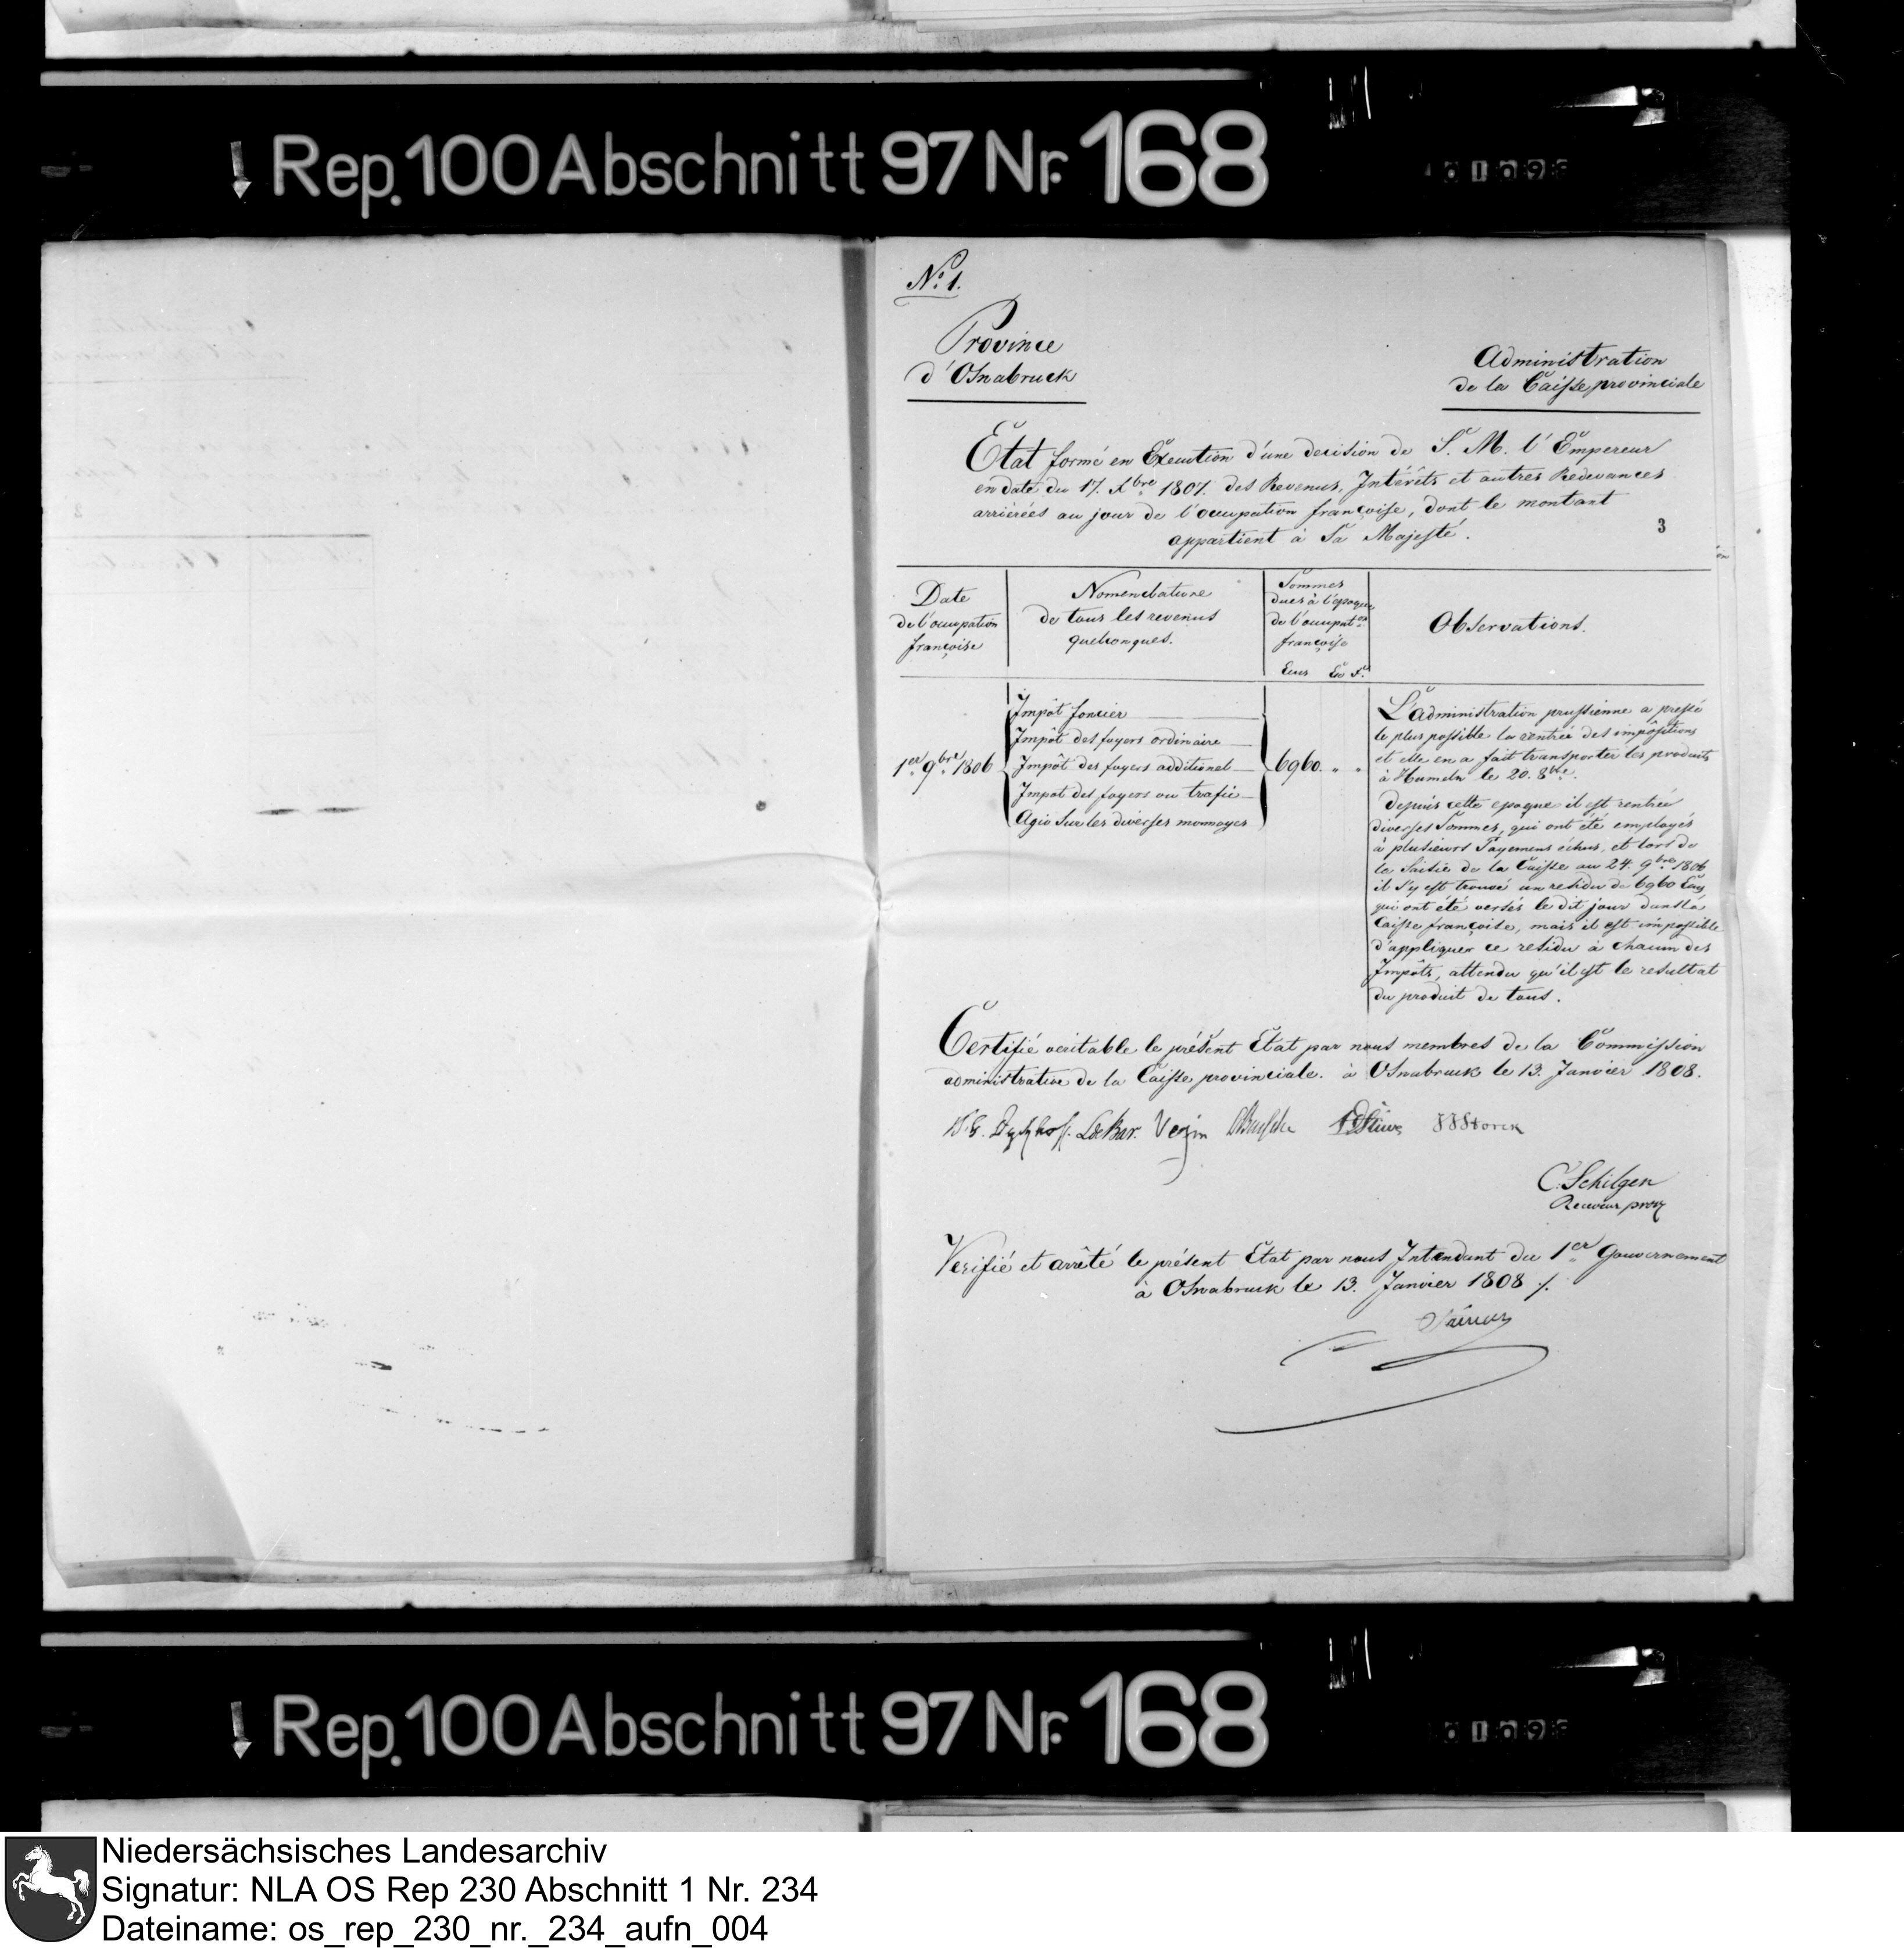 Rep. 100 Abschnitt 97 Nr. 168
No. 1.
Province
d'Osnabruck
Administration
de la Caisse provinciale
Etat formé en Execution d'une decision de S. M. l'Empereur
en date du 17. Xbre 1807. des Revenus, Intérêts et autres Redevances
arriérés au jour de l'occupation françoise, dont le montant
appartient à Sa Majesté.
3
Date
de l'occupation
françoise
Nomenclature
de tous les revenus
quelconques.
Sommes
dues à l'epoque
de l'occupat.on
françoise
Ecus
Observations.
1er 9bre 1806
Impôt foncier
Impôt des foyers ordinaire
Impôt des foyers additionel
Impot des foyers au trafic
Agio sur les diverses monnoyes
6960. " "
L'administration prussienne a pressé
le plus possible la rentrée des impôsitions
et elle en a fait transporter les produits
à Hameln le 20. 8bre.
Depuis cette epoque il est rentrée
diverses Sommes, qui ont été employés
à plusieurs Payemens échus, et lors de
la Saisie de la Caisse au 24. 9bre 1806
il s'y est trouvé un residu de 6960 Ecus,
qui ont été versés le dit jour dans la
Caisse françoise, mais il est impossible
d'appliquer ce residu à chacun des
Impôts, attendu qu'il est le resultat
du produit de tous.
Certifié veritable le présent Etat par nous membres de la Commission
administrative de la Caisse provinciale. à Osnabruck le 13. Janvier 1808.
Vezin Stüve Storck
C. Schilgen
Receveur prov
Verifié et arrêté le présent Etat par nous Intendant du 1er Gouvernement
à Osnabruck le 13. Janvier 1808 ./.
Rep. 100 Abschnitt 97 Nr. 168
Niedersächsisches Landesarchiv
Signatur: NLA OS Rep 230 Abschnitt 1 Nr. 234
Dateiname: os_rep_230_nr._234_aufn_004